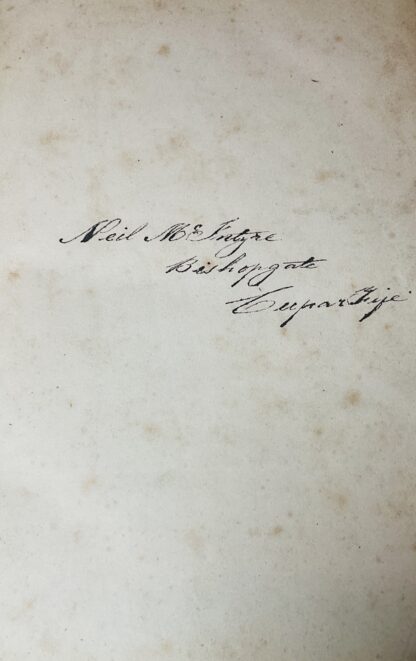 Neil Mc Intyre
Bishopgate
Cupar Fife